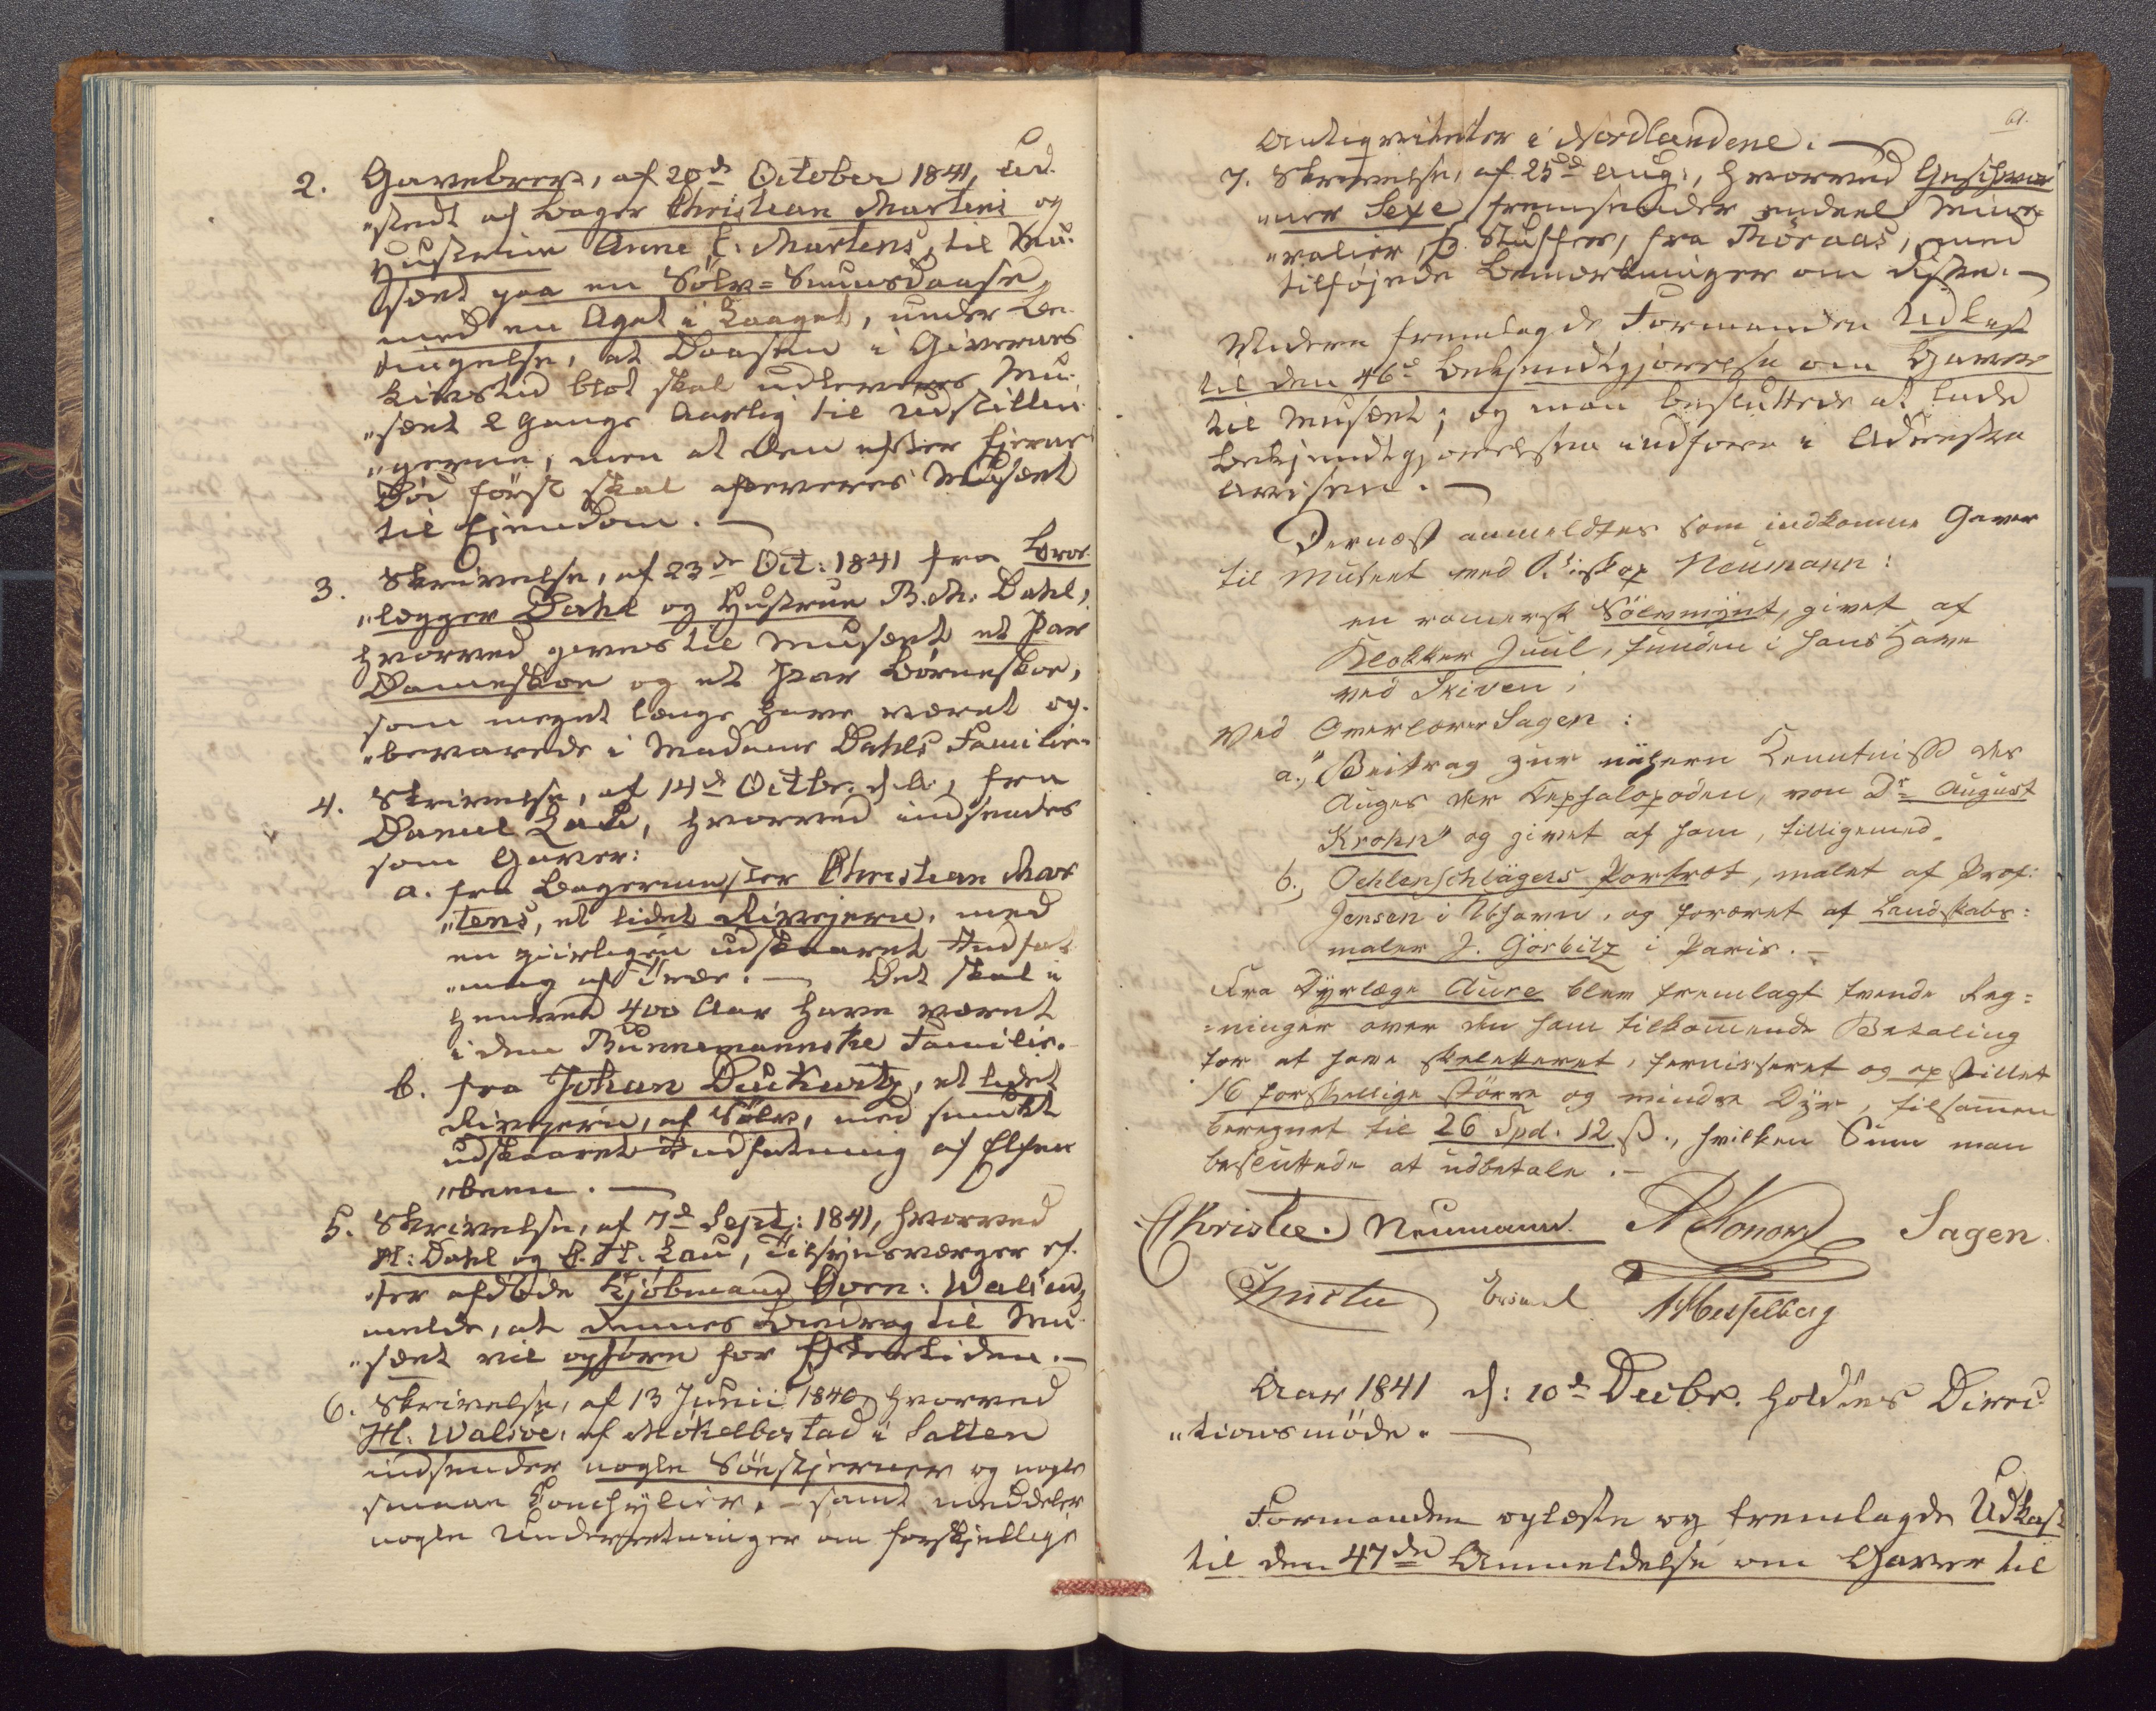 2. Gavebrev, af 20de October 1841, ud-
"stedt af Bager Christian Martens og
Hustrue Anne E. Martens, til Mu-
sæet paa en Sölv-Snuusdaase
med en Agat i Laaget, under Be-
tingelse, at Daasen i Givernes
Livstid blot skal udleveres Mu-
"sæet 2 Gange Aarlig til Udstillin-
"gerne, men at den efter Eiernes
Död först skal afleveres Musæet
til Eiendom. —
3. Skrivelse, af 23de Oct: 1841 fra Bror-
"lægger Dahl og Hustrue B. M. Dahl,
hvorved gives til Musæet et Par
Dameskoe og et Par Börneskoe,
som meget længe have været op-
"bevarede i Madame Dahls Familie.
4. Skrivelse, af 14de Octbr. d. A., fra
Daniel Lau, hvorved indsendes
som Gaver:
a. fra Bagermester Christian Mar-
"tens, et lidet Rivejern, med
en ziirligen udskaaret Indfat-
"ning af Træ. — Det skal i
henved 400 Aar have været
i den Bunnemannske Familie.
b. fra Johan Duckwitz, et lidet
Rivejern, af Sölv, med smukt
udskaaret Indfatning af Elfen-
"been. —
5. Skrivelse, af 7de Sept: 1841, hvorved
H: Dahl og C. H. Lau, Tilsynsværger ef-
"ter afdöde Kjöbmand Oven: Walsem,
melde, at dennes Bidrag til Mu-
"sæet vil ophöre for Eftertiden. —
6. Skrivelse, af 13 Junii 1840, hvorved
H. Walsöe, af Mökelbostad i Salten
indsender nogle Söestjerner og nogle
smaae Conchylier, — samt meddeler
nogle Underretninger om forskjellige
61.
Antiqviteter i Nordlandene. —
7. Skrivelse, af 25de Aug:, hvorved Geschwor-
"ner Sexe fremsender endeel Mine-
"ralier, St. Stuffer, fra Röraas, med
tilföjede Bemærkninger om disse. —
Videre fremlagde Formanden Udkast
til den 46de Bekjendtgjörelse om Gaver
til Musæet; og man besluttede at lade
Bekjendtgjörelsen indföre i Adresse
Avisen. —
Dernæst anmeldtes som indkomne Gaver
til Museet ved Biskop Neumann:
en romersk Sölvmynt, givet af
Klokker Juul, funden i hans Have
ved Skiven;
Ved Overlærer Sagen:
a., "Beitrag zur nähern Kenntniss des
Auges der Kephalopoden, von Dr. August
Krohn" og givet af ham, tilligemed
b., Oehlenschlägers Portræt, malet af Prof:
Jensen i Kbhavn, og foræret af Landskabs-
maler J. Görbitz i Paris. —
Fra Dyrlæge Aure blev fremlagt tvende Reg-
-ninger over den ham tilkommende Betaling
for at have skeletteret, fernisseret og opstillet
16 forskellige större og mindre Dyr, tilsammen
beregnet til 26 Spd. 12 ß., hvilken Sum man
besluttede at udbetale. —
Christie. Neumann. Konow Sagen.
Meszelberg
Aar 1841 d: 10de Decbr. holdtes Direc-
"tionsmöde. —
Formanden oplæste og fremlagde Udkast
til den 47de Anmeldelse om Gaver til